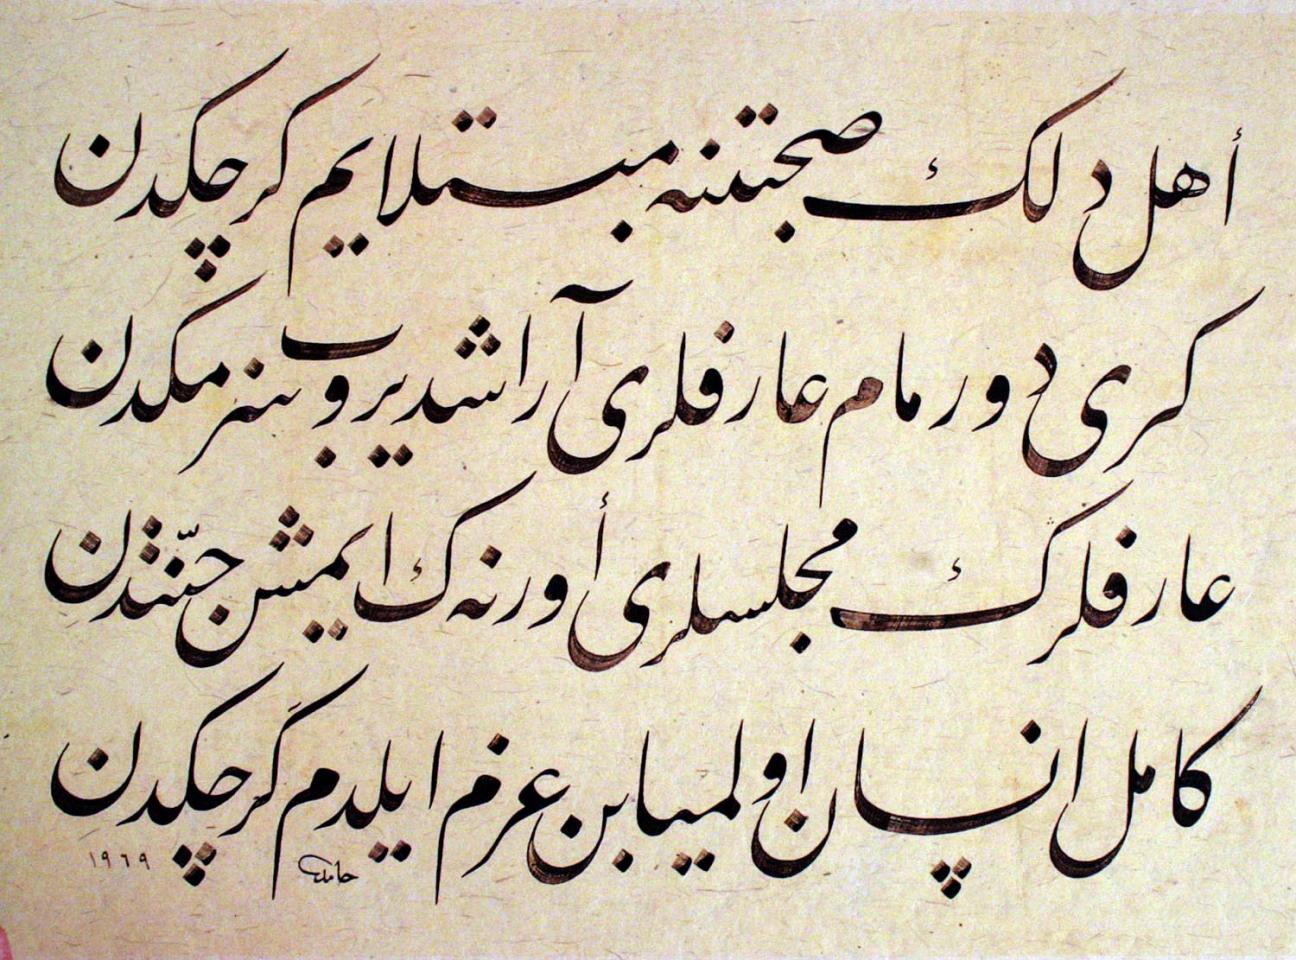 أهل دلكء صحبتنه مبتلايم كرچكدن
كرى دورمام عارفلرى آراشديروب بنزمكدن
عارفلركء مجلسلرى أورنه كء ايمش جنّتدن
كامل انسان اولميا بن عزم ايلدم كَرچكدن
حامد ١٩٦٩